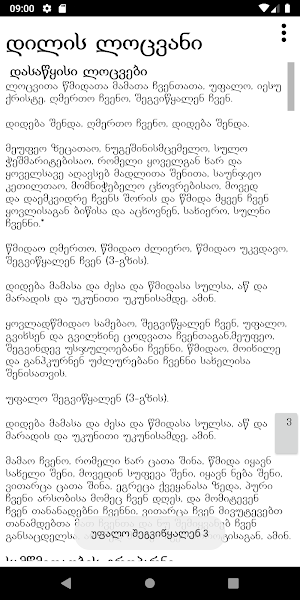 09:00
დილის ლოცვანი
დასაწყისი ლოცვები
ლოცვითა წმიდათა მამათა ჩვენთათა, უფალო, იესუ
ქრისტე, ღმერთო ჩვენო, შეგვიწყალენ ჩვენ.
დიდება შენდა, ღმერთო ჩვენო, დიდება შენდა.
მეუფეო ზეცათაო, ნუგეშინისმცემელო, სულო
ჭეშმარიტებისაო, რომელი ყოველგან ხარ და
ყოველსავე აღავსებ მადლითა შენითა, საუნჯეო
კეთილთაო, მომნიჭებელო ცხოვრებისაო, მოვედ
და დაემკვიდრე ჩვენს შორის და წმიდა მყვენ ჩვენ
ყოვლისაგან ბიწისა და აცხოვნენ, სახიერო, სულნი
ჩვენნი.*
წმიდაო ღმერთო, წმიდაო ძლიერო, წმიდაო უკვდავო,
შეგვიწყალენ ჩვენ (3-გზის).
დიდება მამასა და ძესა და წმიდასა სულსა, აწ და
მარადის და უკუნითი უკუნისამდე, ამინ.
ყოვლადწმიდაო სამებაო, შეგვიწყალენ ჩვენ, უფალო,
გვიხსენ და გვილხინე ცოდვათა ჩვენთაგან,მეუფეო,
შეგვინდევ უსჯულოებანი ჩვენნი, წმიდაო, მოიხილე
და განჰკურნენ უძლურებანი ჩვენნი სახელისა
შენისათვის.
უფალო შეგვიწყალენ (3-გზის).
დიდება მამასა და ძესა და წმიდასა სულსა, აწ და
მარადის და უკუნითი უკუნისამდე, ამინ.
3
მამაო ჩვენო, რომელი ხარ ცათა შინა, წმიდა იყავნ
სახელი შენი, მოვედინ სუფევა შენი, იყავნ ნება შენი,
ვითარცა ცათა შინა, ეგრეცა ქვეყანასა ზედა, პური
ჩვენი არსობისა მომეც ჩვენ დღეს, და მომიტევენ
ჩვენ თანანადებნი ჩვენნი, ვითარცა ჩვენ მივუტევებთ
თანამდებთა
ჩვენ
განსაცდელსა,
ამინ.
უფალო შეგვიწყალენ 3